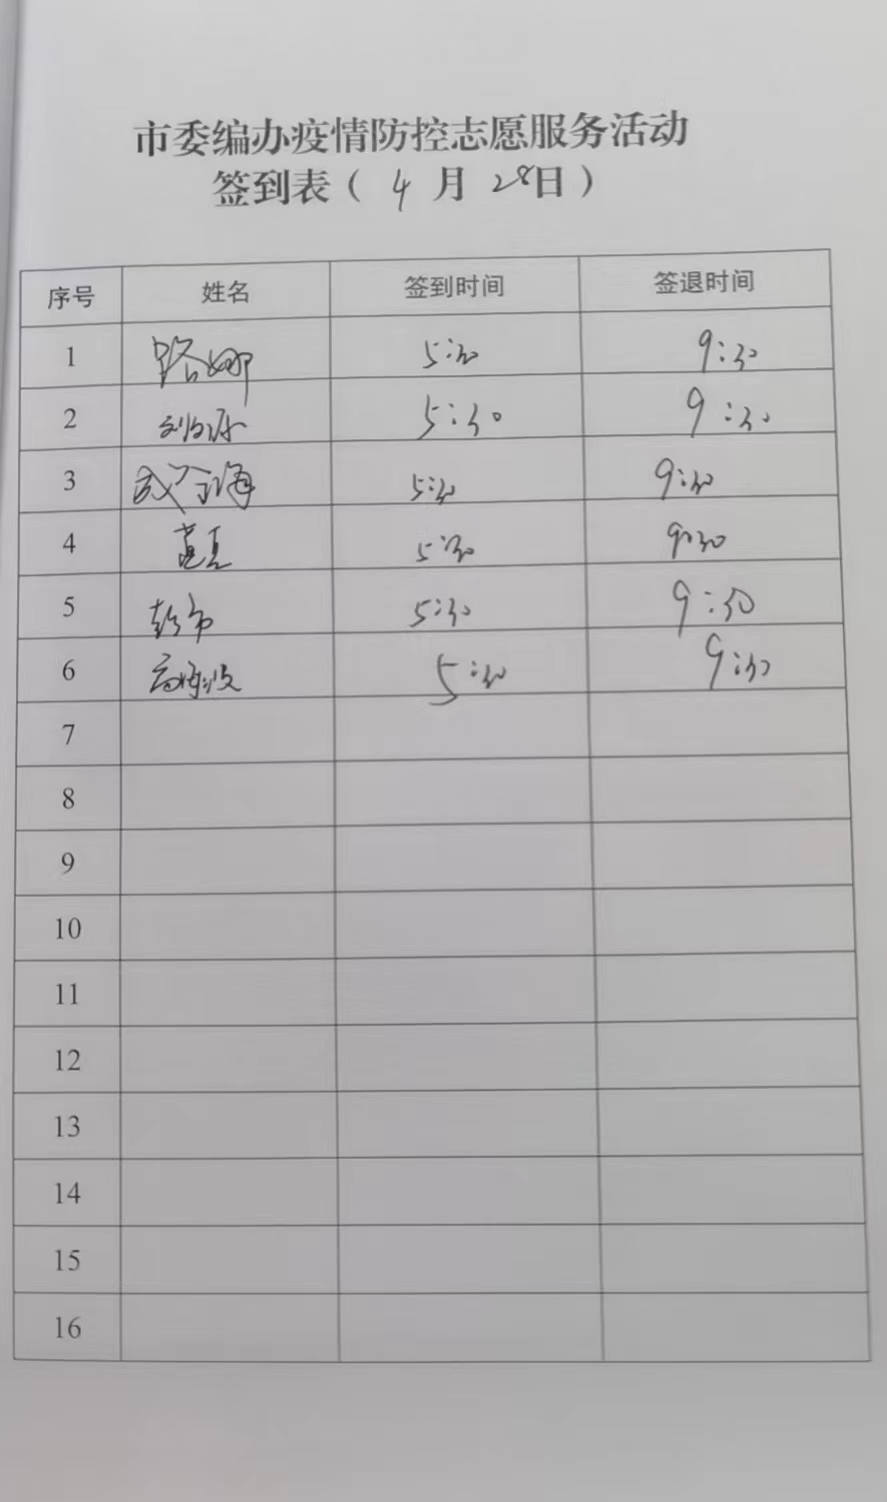 市委编办疫情防控志愿服务活动
签到表（ 4 月 28日）
序号 姓名 签到时间 签退时间
1 路娜 5:30 9:30
2 5:30 9:30
3 5:30 9:30
4 5:30 9:30
5 5:30 9:30
6 5:30 9:30
7
8
9
10
11
12
13
14
15
16